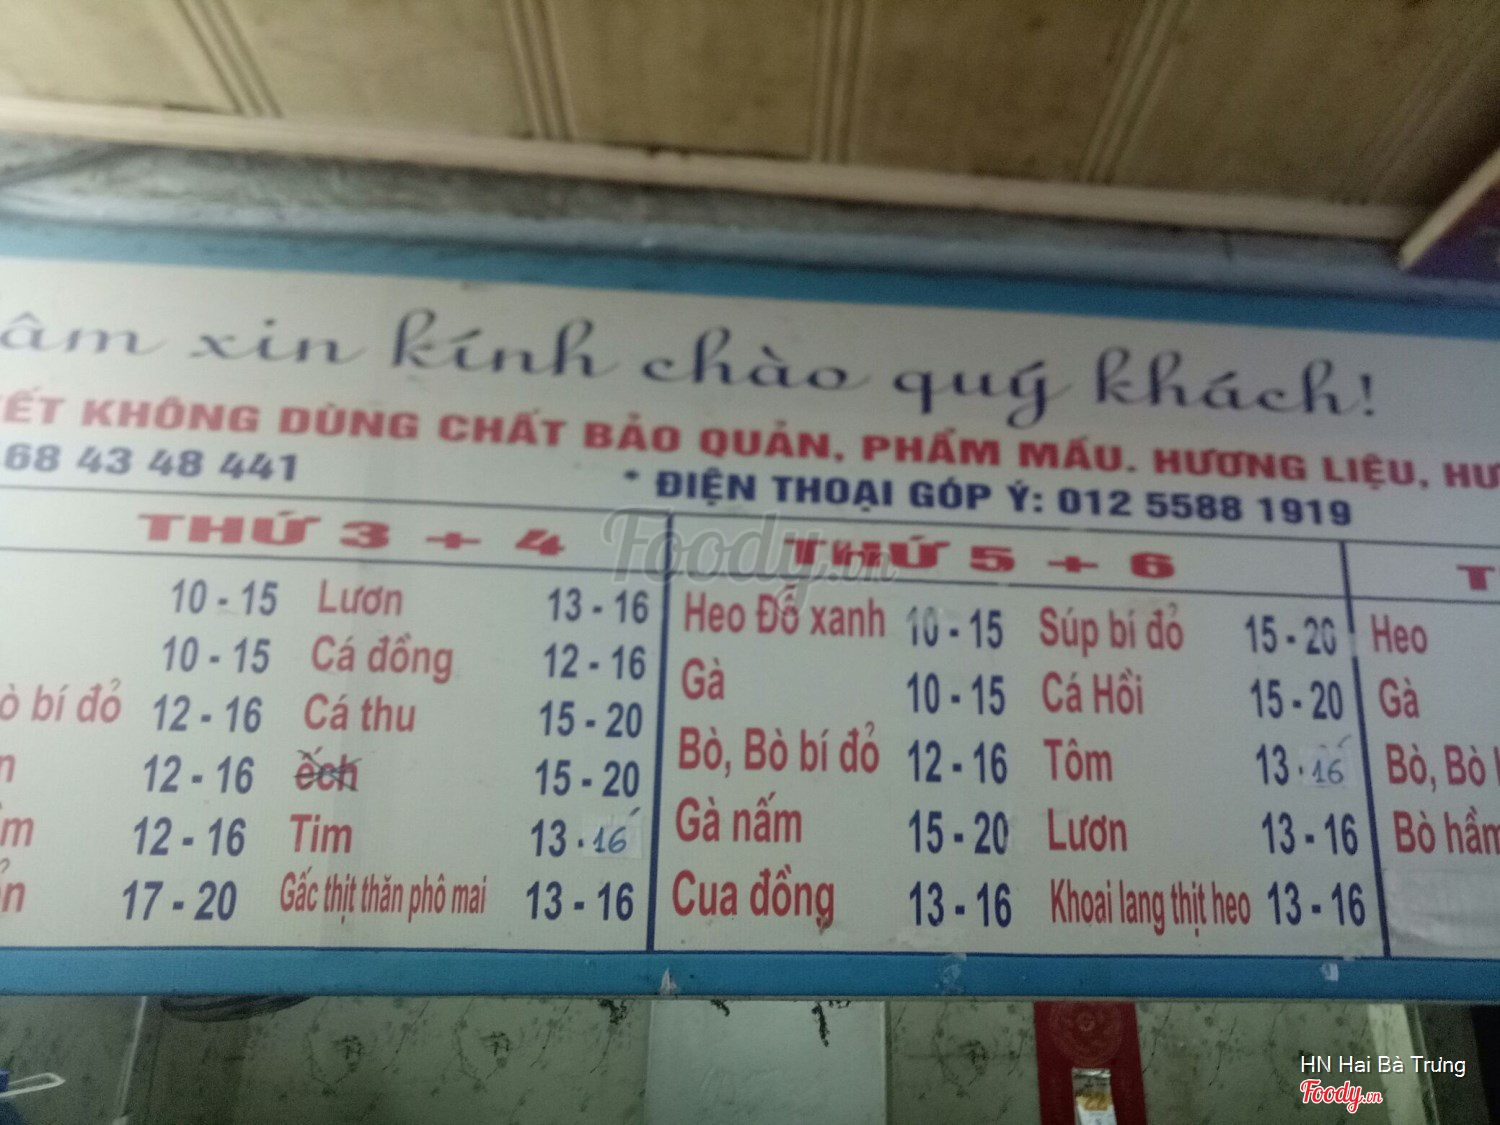 xin kính chào quý khách!
KHÔNG DÙNG CHẤT BẢO QUẢN, PHẨM MẦU. HƯƠNG LIỆU,
68 43 48 441
* ĐIỆN THOẠI GÓP Ý: 012 5588 1919
THỨ 3 + 4
10 - 15 Lươn 13 - 16
10 - 15 Cá đồng 12 - 16
bí đỏ 12 - 16 Cá thu 15 - 20
12 - 16 ếch 15 - 20
12 - 16 Tim 13 - 16
17 - 20 Gấc thịt thăn phô mai 13 - 16
THỨ 5 + 6
Heo Đỗ xanh 10 - 15 Súp bí đỏ 15 - 20
Gà 10 - 15 Cá Hồi 15 - 20
Bò, Bò bí đỏ 12 - 16 Tôm 13 - 16
Gà nấm 15 - 20 Lươn 13 - 16
Cua đồng 13 - 16 Khoai lang thịt heo 13 - 16
Heo
Gà
Bò, Bò
Bò hầm
Foody.vn
HN Hai Bà Trưng
Foody.vn